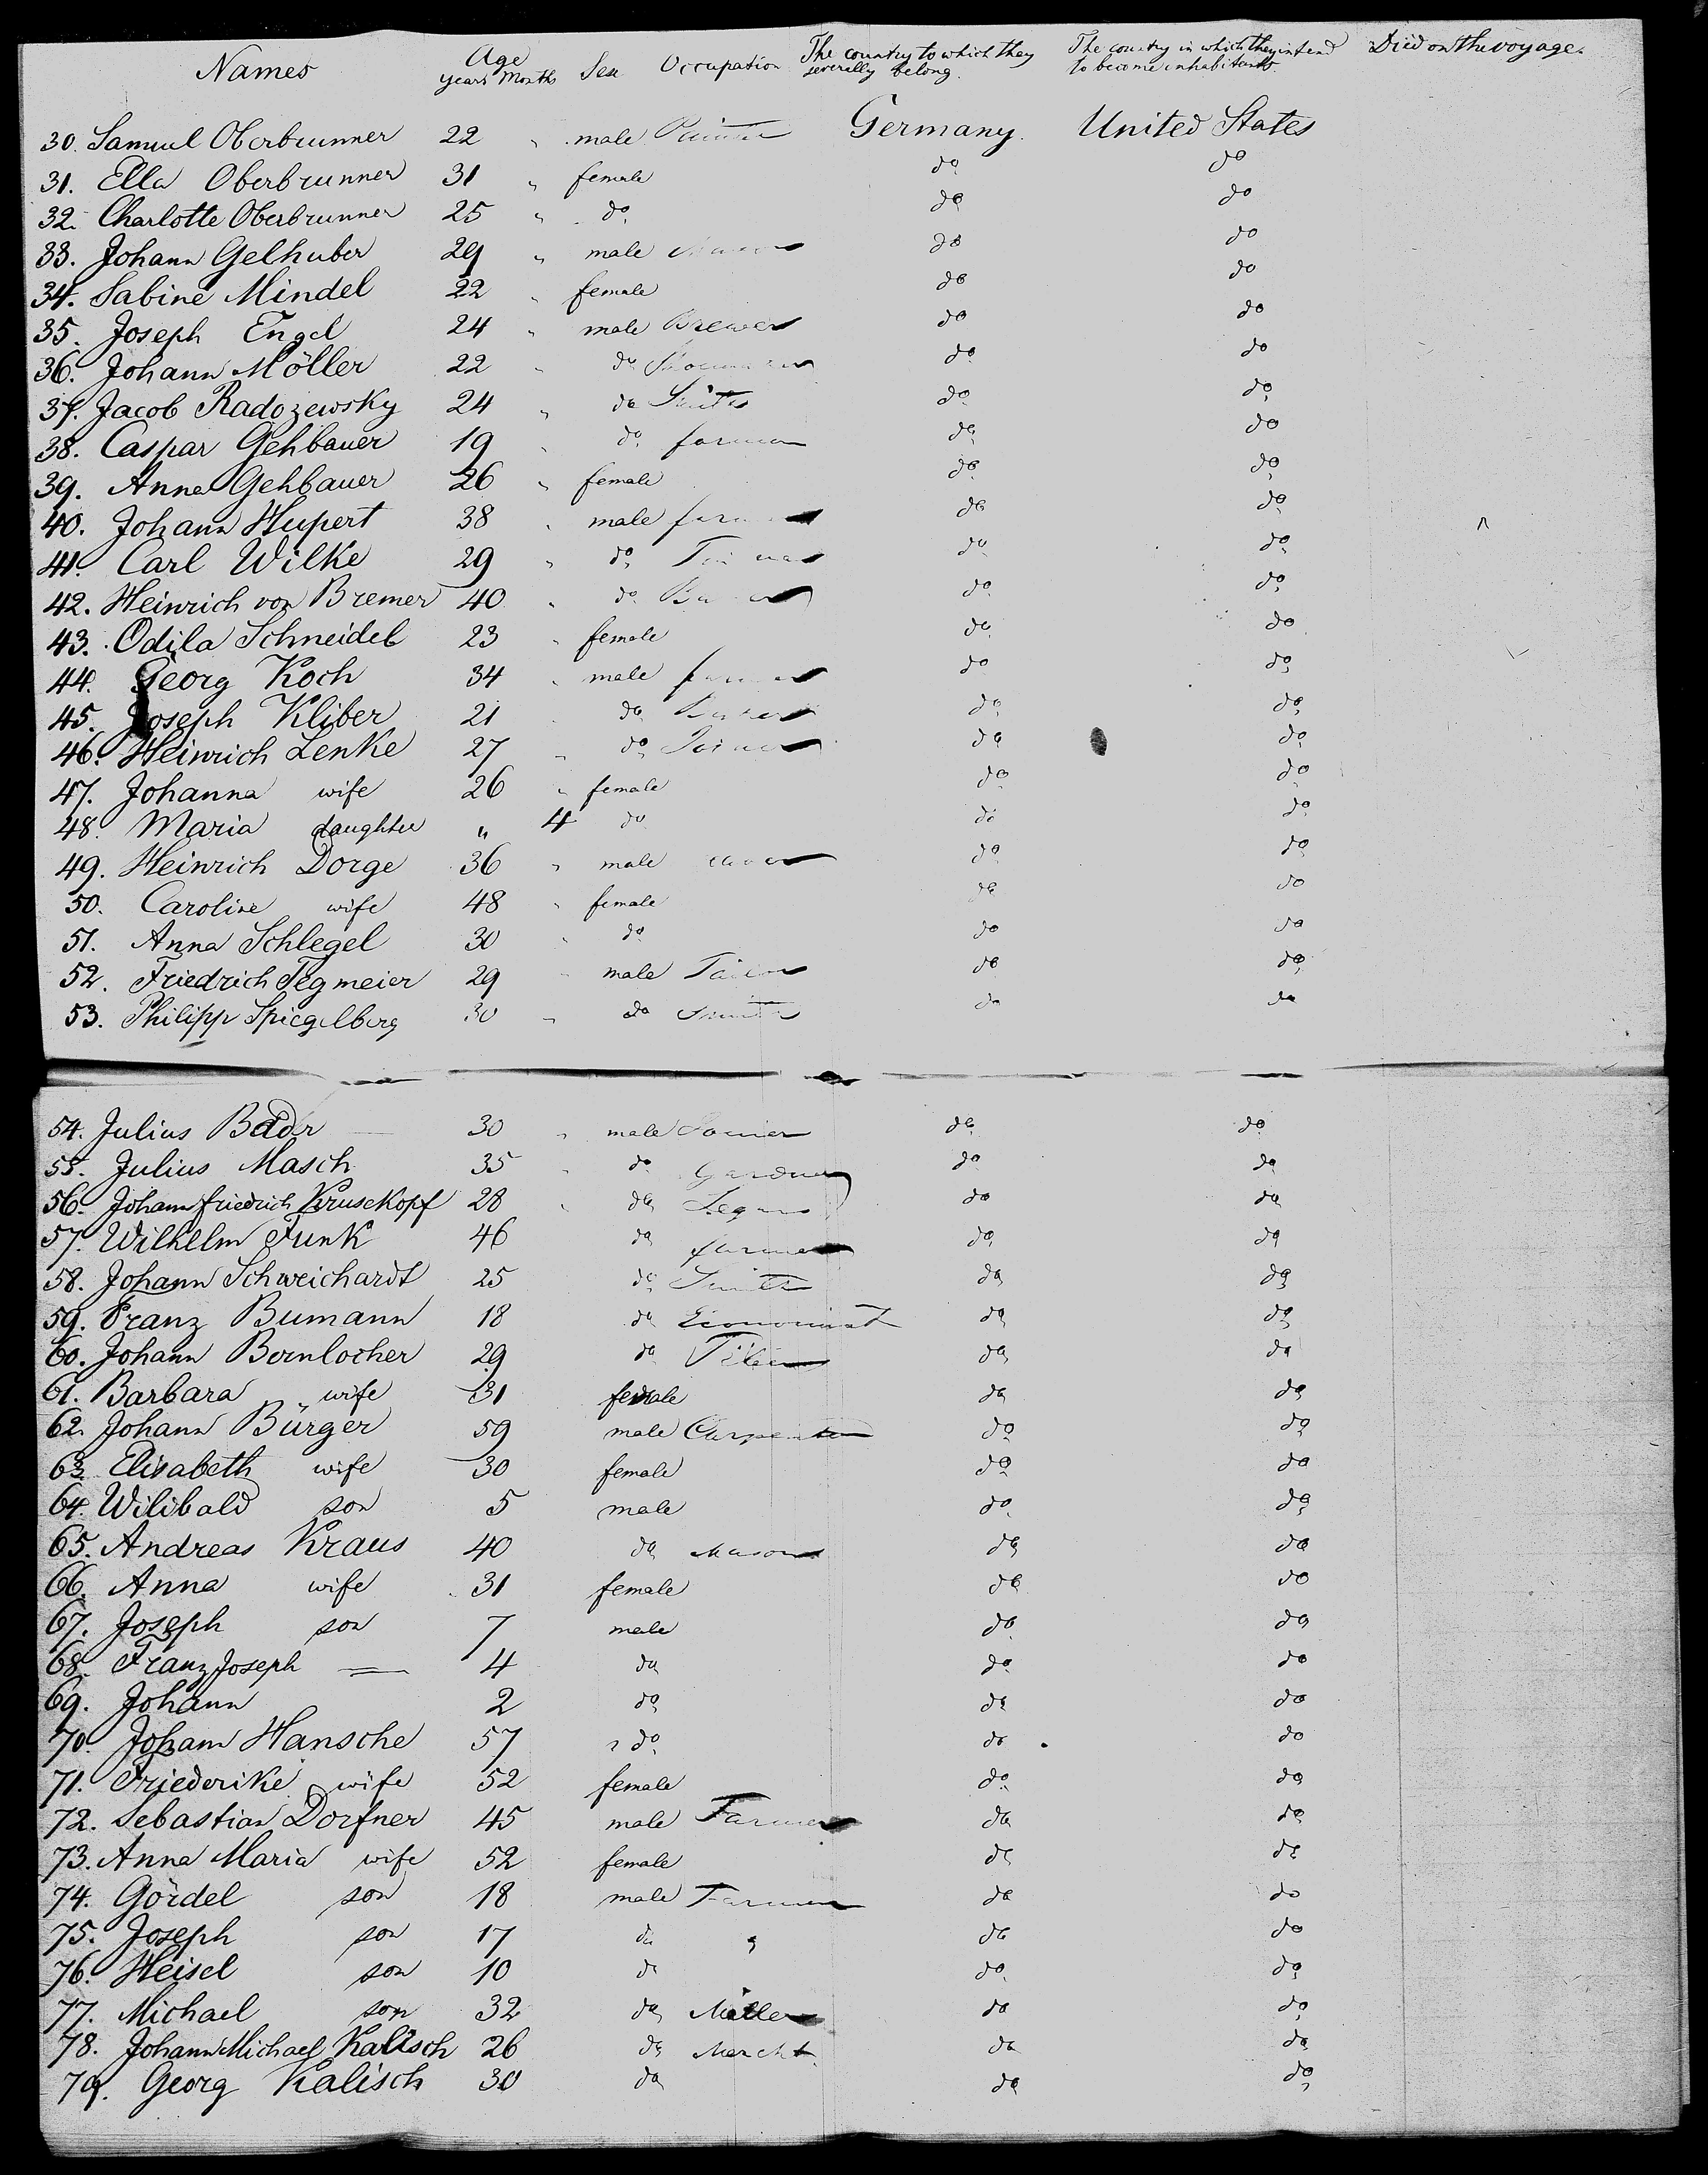 Names Age years Months Sex Occupation The country to which they severally belong. The country in which they intend to become inhabitants. Died on the voyage.
30. Samuel Oberbrunner 22 " male Painter Germany. United States
31. Ella Oberbrunner 31 " female do do
32. Charlotte Oberbrunner 25 " do do do
33. Johann Gelhuber 29 " male do do
34. Sabine Mindel 22 " female do do
35. Joseph Engel 24 " male Brewer do do
36. Johann Möller 22 " do do do
37. Jacob Radozewsky 24 " do Smith do do
38. Caspar Gehbauer 19 " do farmer do do
39. Anna Gehbauer 26 " female do do
40. Johann Hupert 38 " male farmer do do
41. Carl Wilke 29 " do do do
42. Heinrich von Bremer 40 " do do do
43. Odila Schneider 23 " female do do
44. Georg Koch 34 " male farmer do do
45. Joseph Kliber 21 do do do
46. Heinrich Lenke 27 " do Joiner do do
47. Johanna wife 26 " female do do
48. Maria daughter " 4 do do do
49. Heinrich Dorge 36 " male do do
50. Caroline wife 48 " female do do
51. Anna Schlegel 30 " do do do
52. Friedrich Tegmeier 29 " male Tailor do do
53. Philipp Spiegelberg 30 " do Smith do do
54. Julius Bader 30 " male do do
55. Julius Masch 35 " do Gardner do do
56. Johann friedrich Krusekopf 28 " do do do
57. Wilhelm Funk 46 do farmer do do
58. Johann Schweichardt 25 do Smith do do
59. Franz Bumann 18 do Economist do do
60. Johann Bernlocher 29 do do do
61. Barbara wife 31 female do do
62. Johann Bürger 59 male Carpenter do do
63. Elisabeth wife 30 female do do
64. Wilibald son 5 male do do
65. Andreas Kraus 40 do Mason do do
66. Anna wife 31 female do do
67. Joseph son 7 male do do
68. Franz Joseph — 4 do do do
69. Johann 2 do do do
70. Johann Hansche 57 do do do
71. Friederike wife 52 female do do
72. Sebastian Dorfner 45 male Farmer do do
73. Anna Maria wife 52 female do do
74. Gördel son 18 male Farmer do do
75. Joseph son 17 do " do do
76. Heisel son 10 do do do
77. Michael son 32 do Miller do do
78. Johann Michael Kalisch 26 do Mercht. do do
79. Georg Kalisch 30 do do do